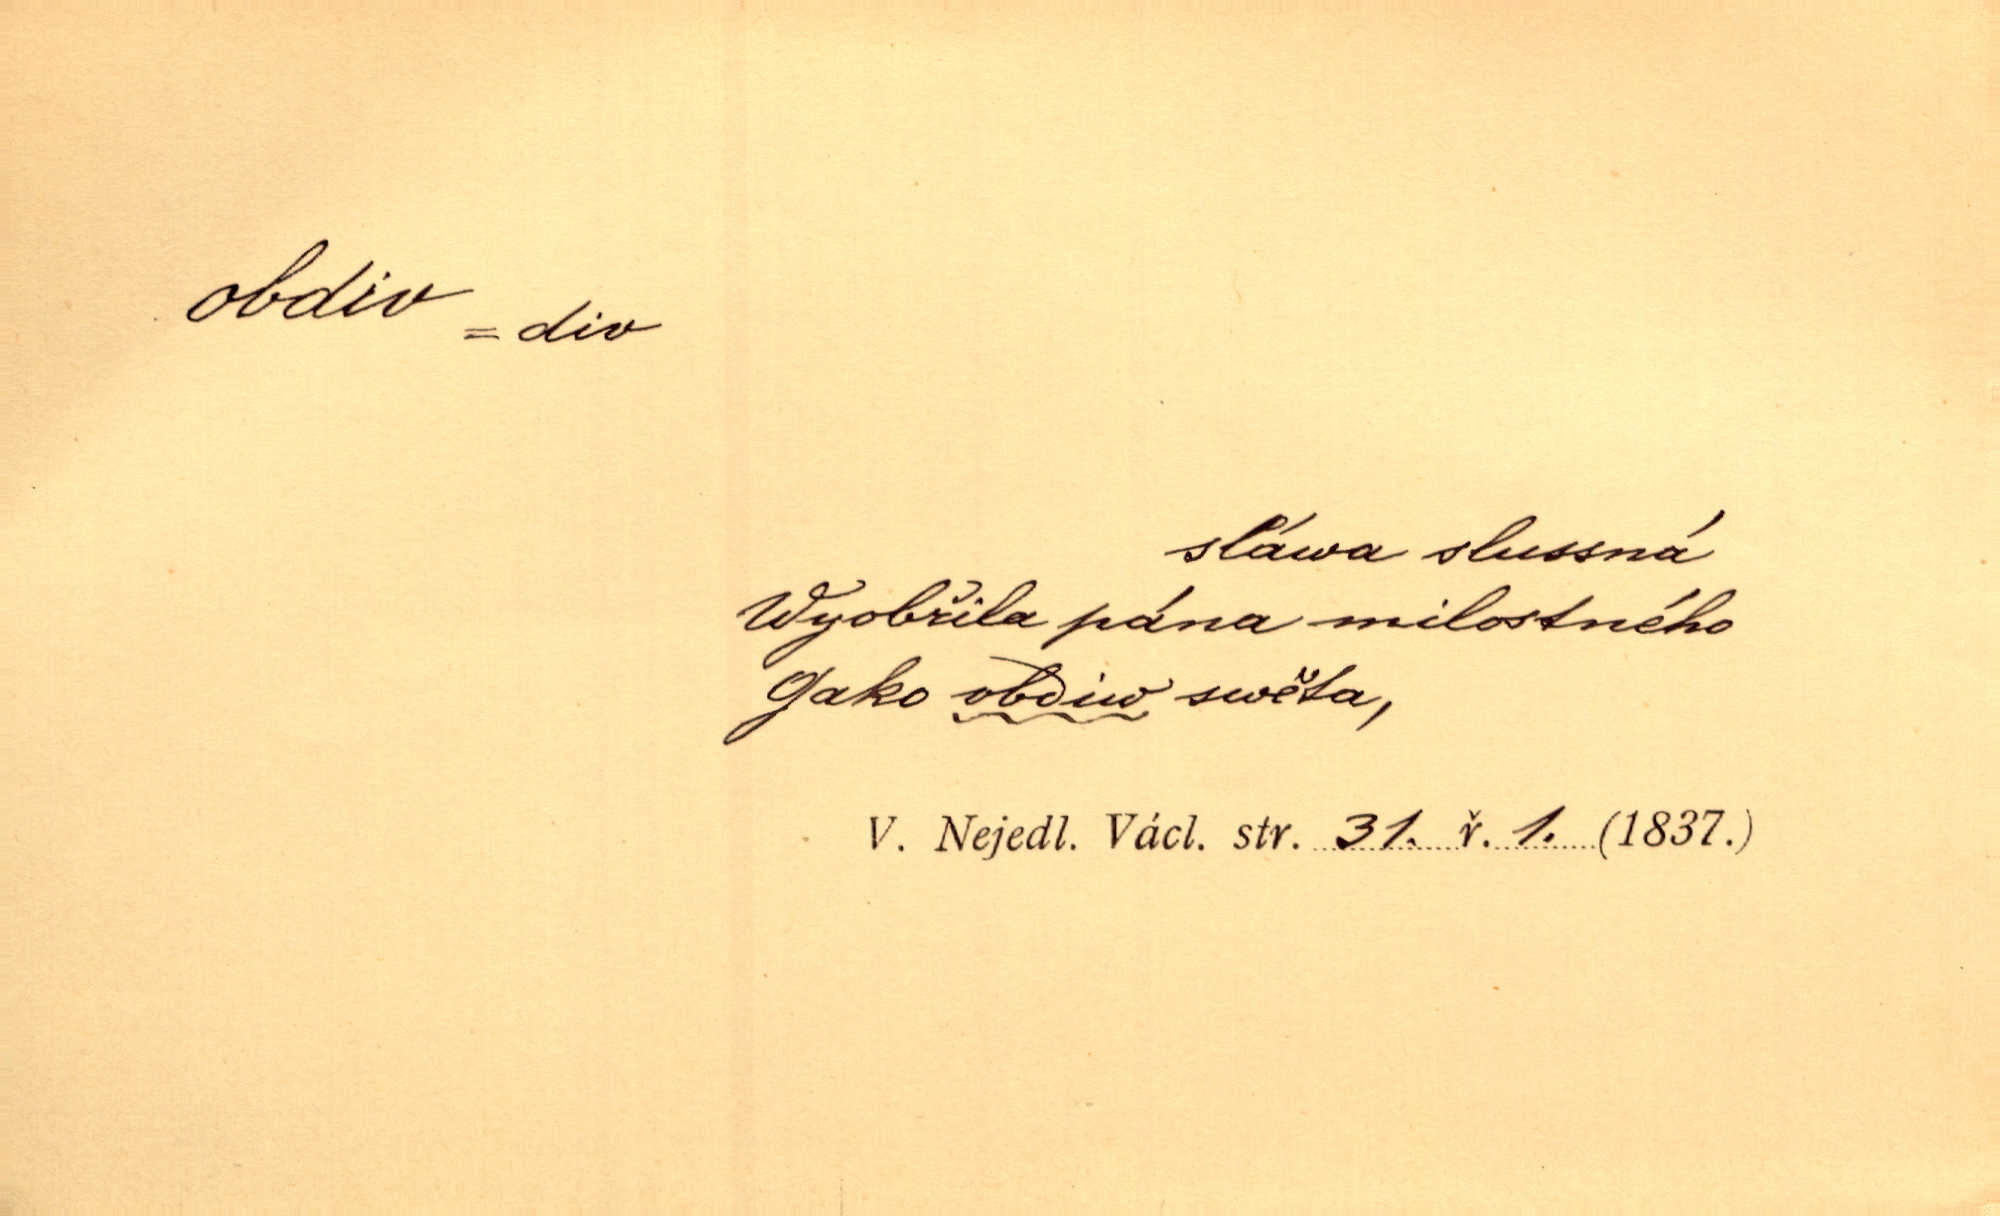 obdiv = div
sláwa slussná
Wyobřila pána milostného
Gako obdiw swěta,
V. Nejedl. Václ. str. 31. ř. 1. (1837.)